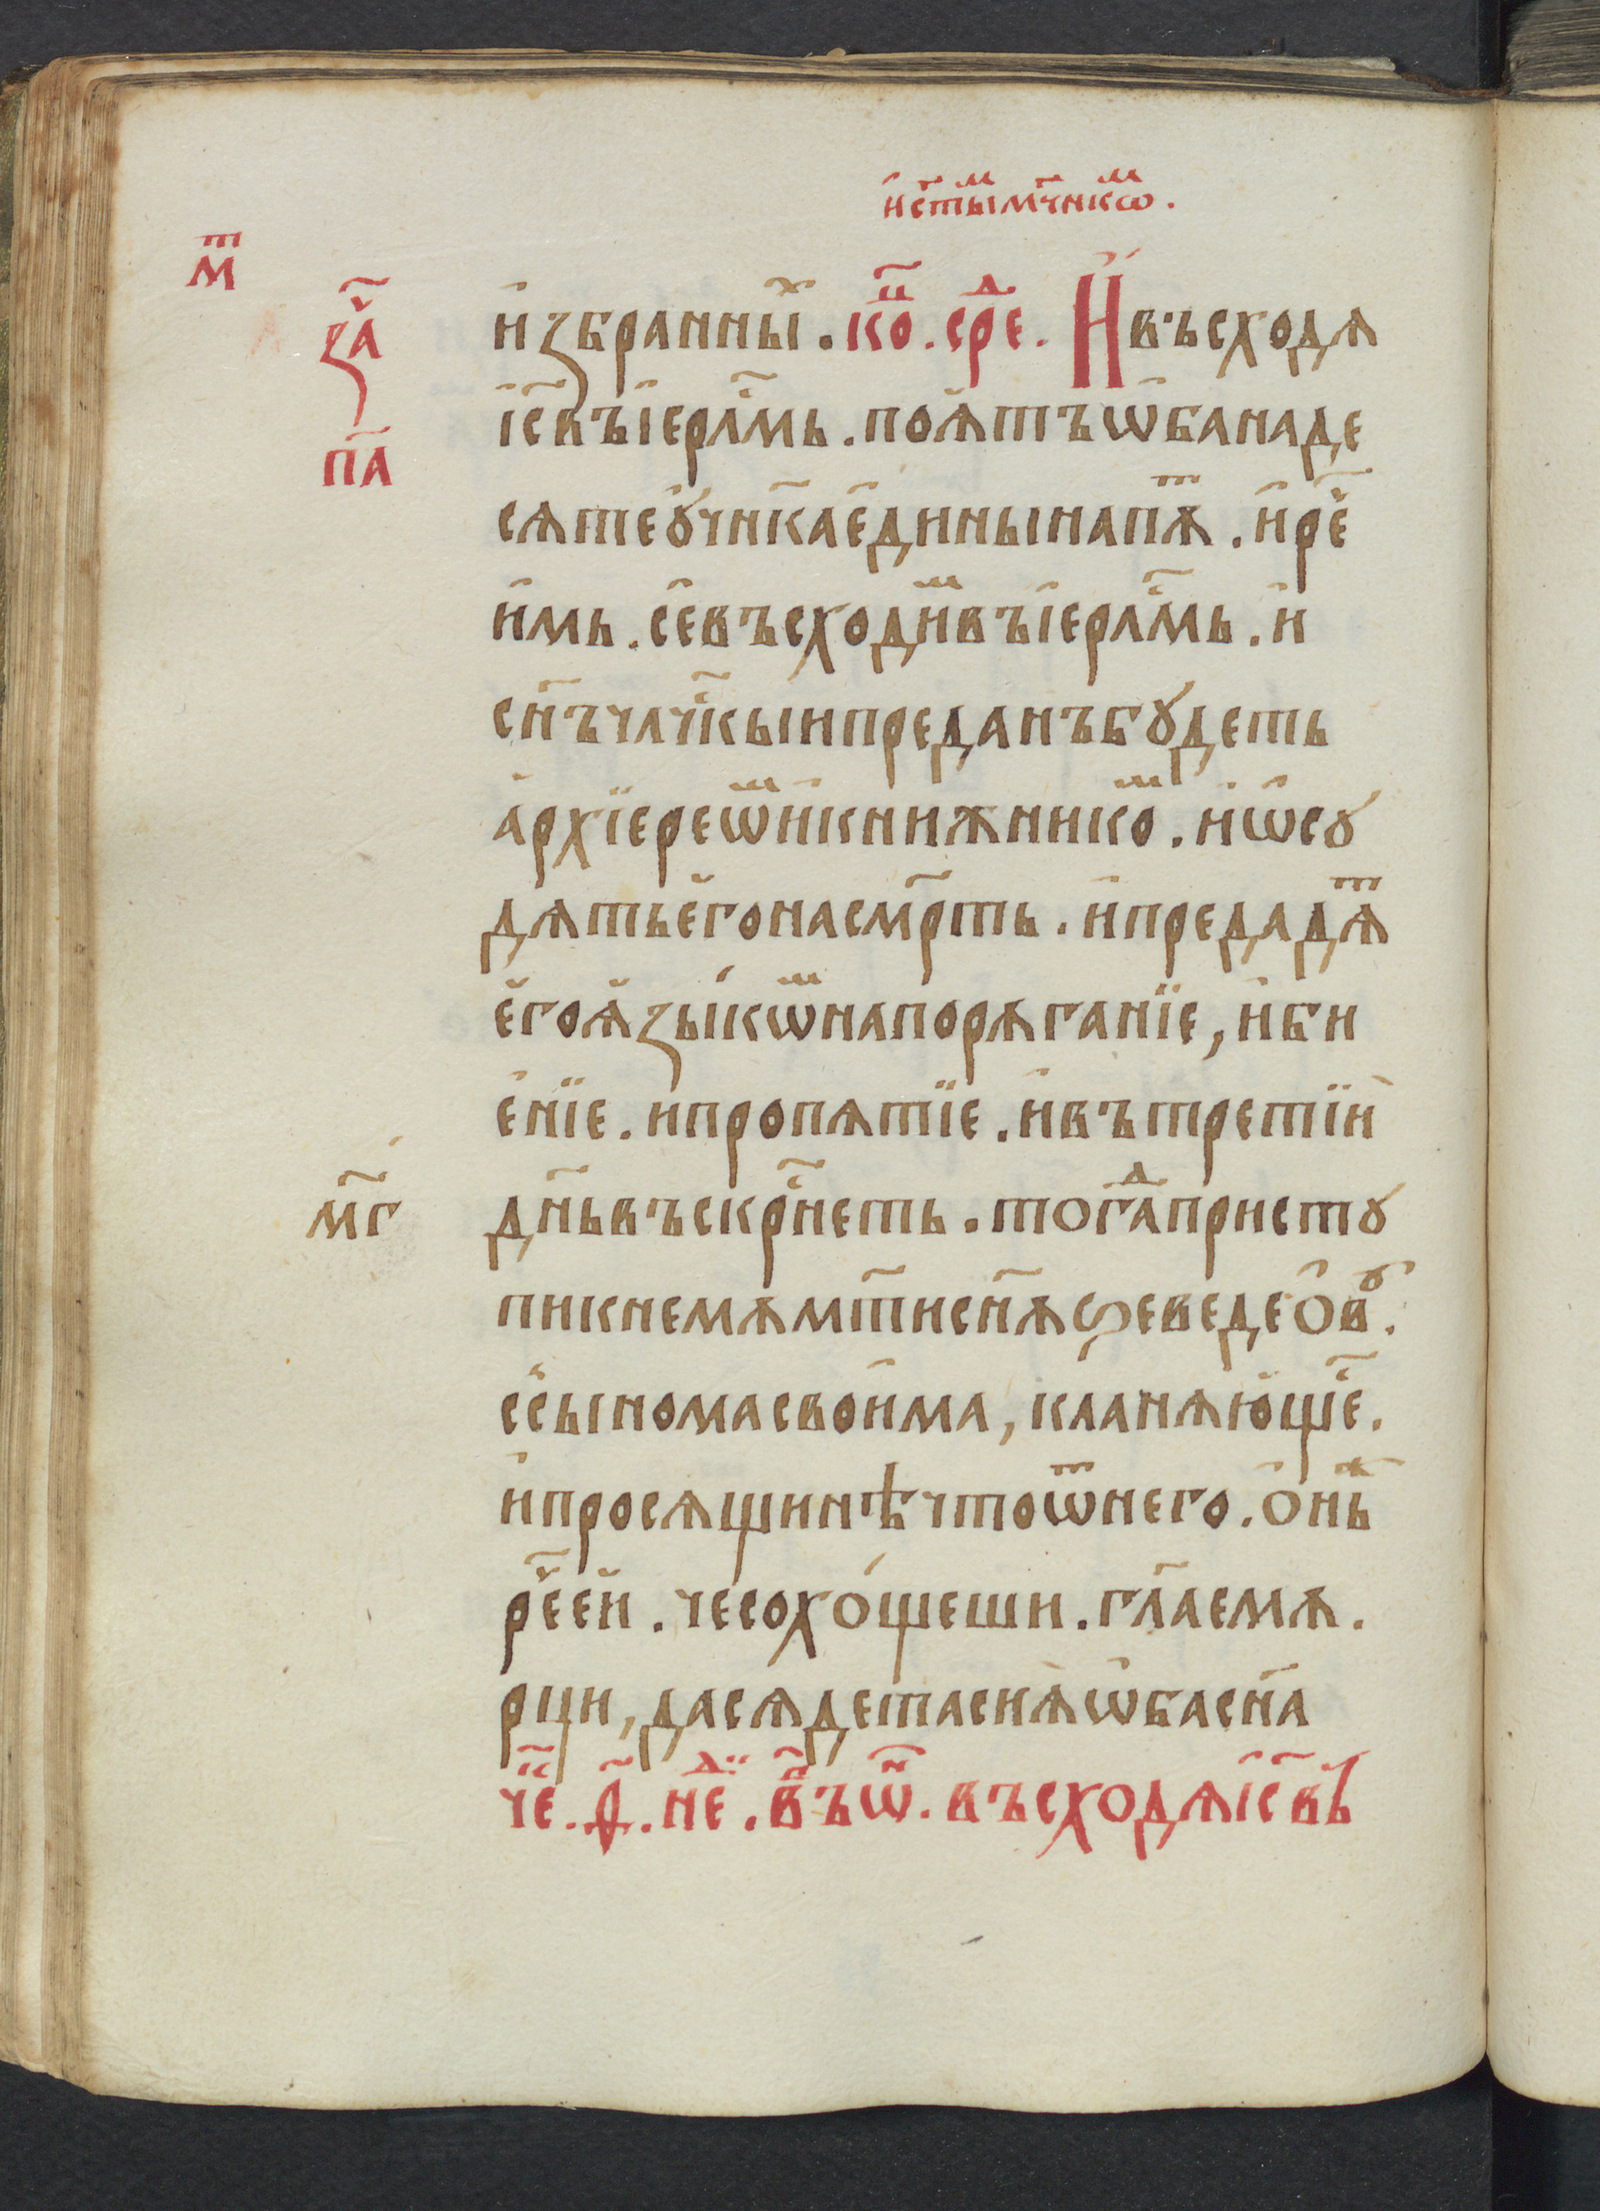 и҆ст҃ы́ⷨмч҃нкѡⷨ.
мⷮ
за҃ч
па҃
и҆збранныⷯ. коⷰ҇ⷩ. среⷣ. И҆въсходѧ
і҆с҃въі҆ерл҃мь. поѧ҆тъѡ҆банаде
сѧтеѹ҆чнк҃ае҆динынапѧⷮ. и҆ре҃ч
и҆мь. се҆въсходиⷨвъі҆ерл҃мь. и҆
сн҃ъчлч҃кыипреданъбꙋдеть
а҆рхїереѡⷨи҆книжникоⷨ. и҆ѡ҆сꙋ
дѧтье҆гонасмр҃ть. и҆предадѧⷮ
е҆гоѧ҆зы́кѡⷨнапорѧганїе, и҆би
е҆нїе. ипропѧтїе. и҆вътретїи
мг҃
дн҃ьвъскрⷭ҇неть. тогⷣапристꙋ
пикнемѧмт҃исн҃ѧѕеведео҆вꙋ.
ссы҆номасвои҆ма, кланѧю҆щиⷭ҇е.
и҆просѧщинѣчтоѿнего. о҆нъⷤ
ре҃чеи҆. чесохо́щеши. гл҃аемѧ.
рци, дасѧдетасиѧ҆ѡ҆басн҃а
чеⷦ҇. д҃. неⷣ. вⷫ҇ъѡⷩ. въсходѧі҆с҃въ